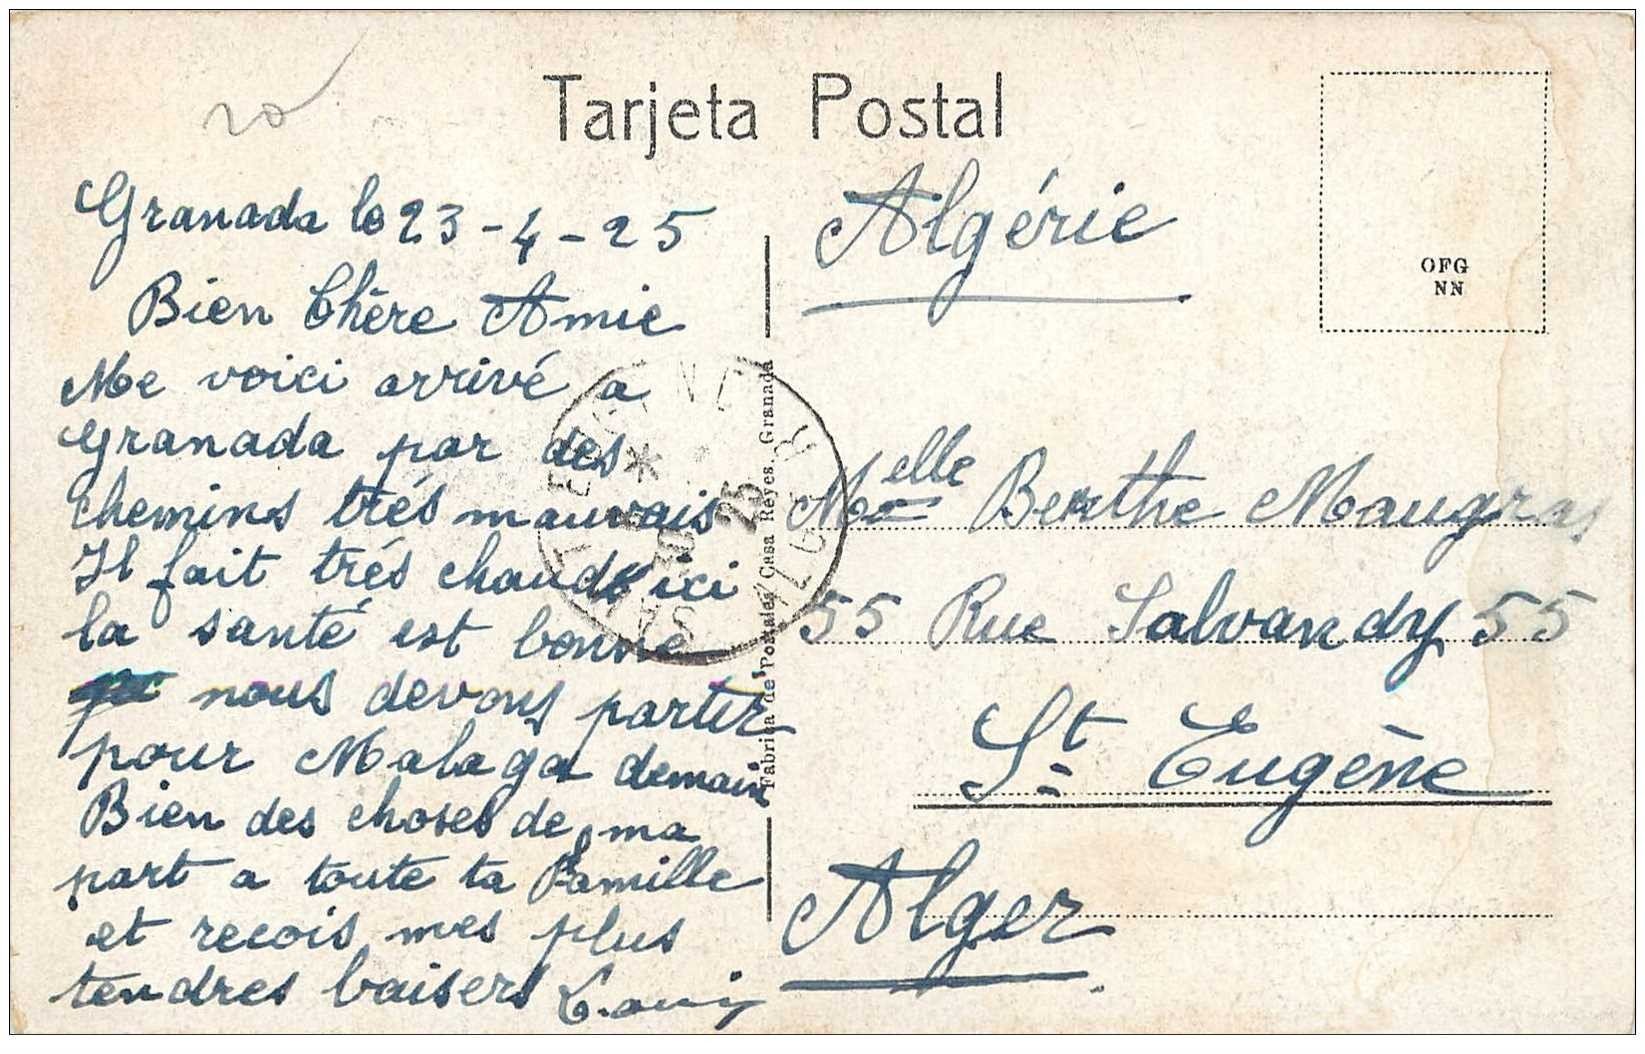 20
Tarjeta Postal
Granada le 23-4-25
Bien Chère Amie
Me voici arrivé a
Granada par des
chemins trés mauvais
Il fait trés chaud ici
la santé est bonne
nous devons partir
pour Malaga demain
Bien des choses de ma
part a toute ta Famille
et recois mes plus
tendres baisers Louis
Fabrica de Postales Casa Reyes. Granada
ST EUGENE
ALGER
25
OFG
NN
Algérie
Melle Berthe Maugras
55 Rue Salvandy 55
St Eugène
Alger.